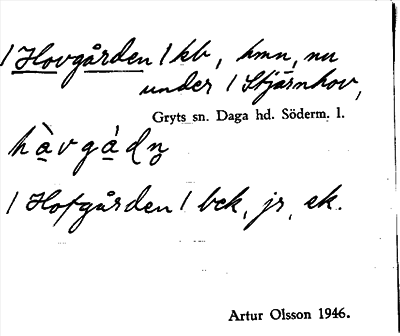 / Hovgården / kb, hmn, nu
under / Stjärnhov,
Gryts sn. Daga hd. Söderm. l.
hàvgádn̥
/ Hofgården / bck, jr, ek.
Artur Olsson 1946.